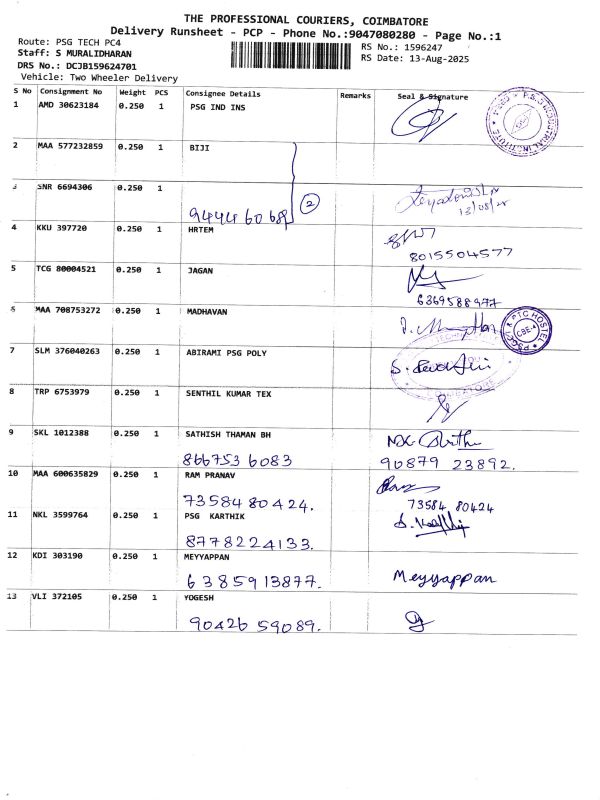 THE PROFESSIONAL COURIERS, COIMBATORE
Delivery Runsheet - PCP - Phone No.:9047080280 - Page No.:1
Route: PSG TECH PC4
RS No.: 1596247
Staff: S MURALIDHARAN
RS Date: 13-Aug-2025
DRS No.: DCJB159624701
Vehicle: Two Wheeler Delivery
S No Consignment No Weight PCS Consignee Details Remarks Seal & Signature
1 AMD 30623184 0.250 1 PSG IND INS
2 MAA 577232859 0.250 1 BIJI
3 SNR 6694306 0.250 1
9444 60689 2
13/08/25
4 KKU 397720 0.250 1 HRTEM
8015504577
5 TCG 80004521 0.250 1 JAGAN
6369588977
6 MAA 708753272 0.250 1 MADHAVAN
PSGCT & PTC HOSTEL CBE-4
7 SLM 376040263 0.250 1 ABIRAMI PSG POLY
COIMBATORE
8 TRP 6753979 0.250 1 SENTHIL KUMAR TEX
9 SKL 1012388 0.250 1 SATHISH THAMAN BH
866753 6083 90879 23892.
10 MAA 600635829 0.250 1 RAM PRANAV
73584 80424. 73584 80424
11 NKL 3599764 0.250 1 PSG KARTHIK
8778224133.
12 KDI 303190 0.250 1 MEYYAPPAN
6385913877. Meyyappan
13 VLI 372105 0.250 1 YOGESH
90426 59089.